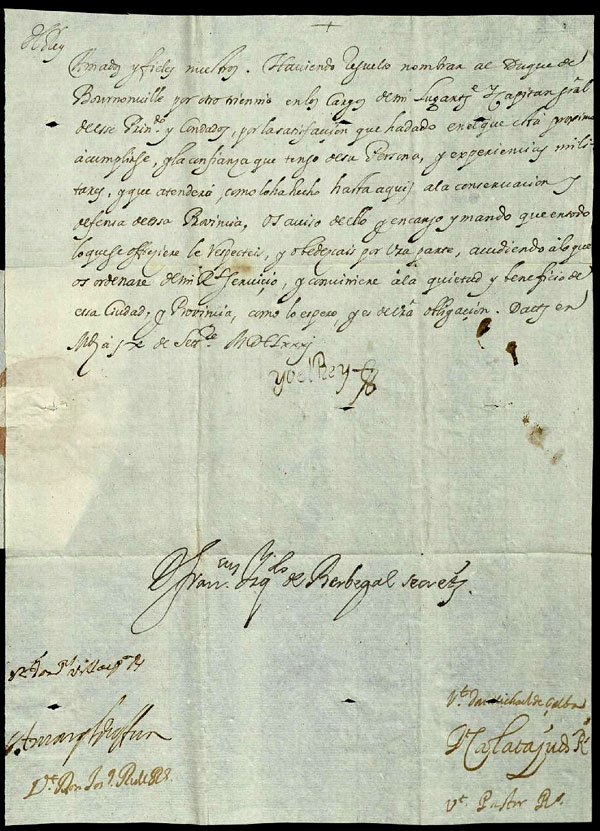 El Rey
Amados y fieles nuestros. Haviendo resuelto nombrar al Duque de
Bournonville por otro trienio en los Cargos de mi Lugartte. y Capitan gñal
de esse Prinᵈᵒ. y Condados, por la satisfacion que ha dado en el que està proximo
à cumplirse, y la confianza que tengo de su Persona, y experiencias mili
tares, y que atenderà, como lo ha hecho hasta aqui, a la conservacion y
defensa de essa Provincia, os aviso de ello y encargo y mando que en todo
lo que se offreciere le respecteis, y obedezcais por vra parte, acudiendo à lo que
os ordenare de mi Rl. servicio, y conviniere à la quietud y beneficio de
essa Ciudad, y Provincia, como lo espero, y es de vrã obligación. Datts en
Md. à de Setre. MDCLxxxj
yo el Rey
D. Fran. Izqdo. de Berbegal secretº.
Vt. Villacpa. R.
Vt. Don Jos. Rull R.
Vt. Don Michael de Çalba
Calatajud R.
Vt. Pastor R.